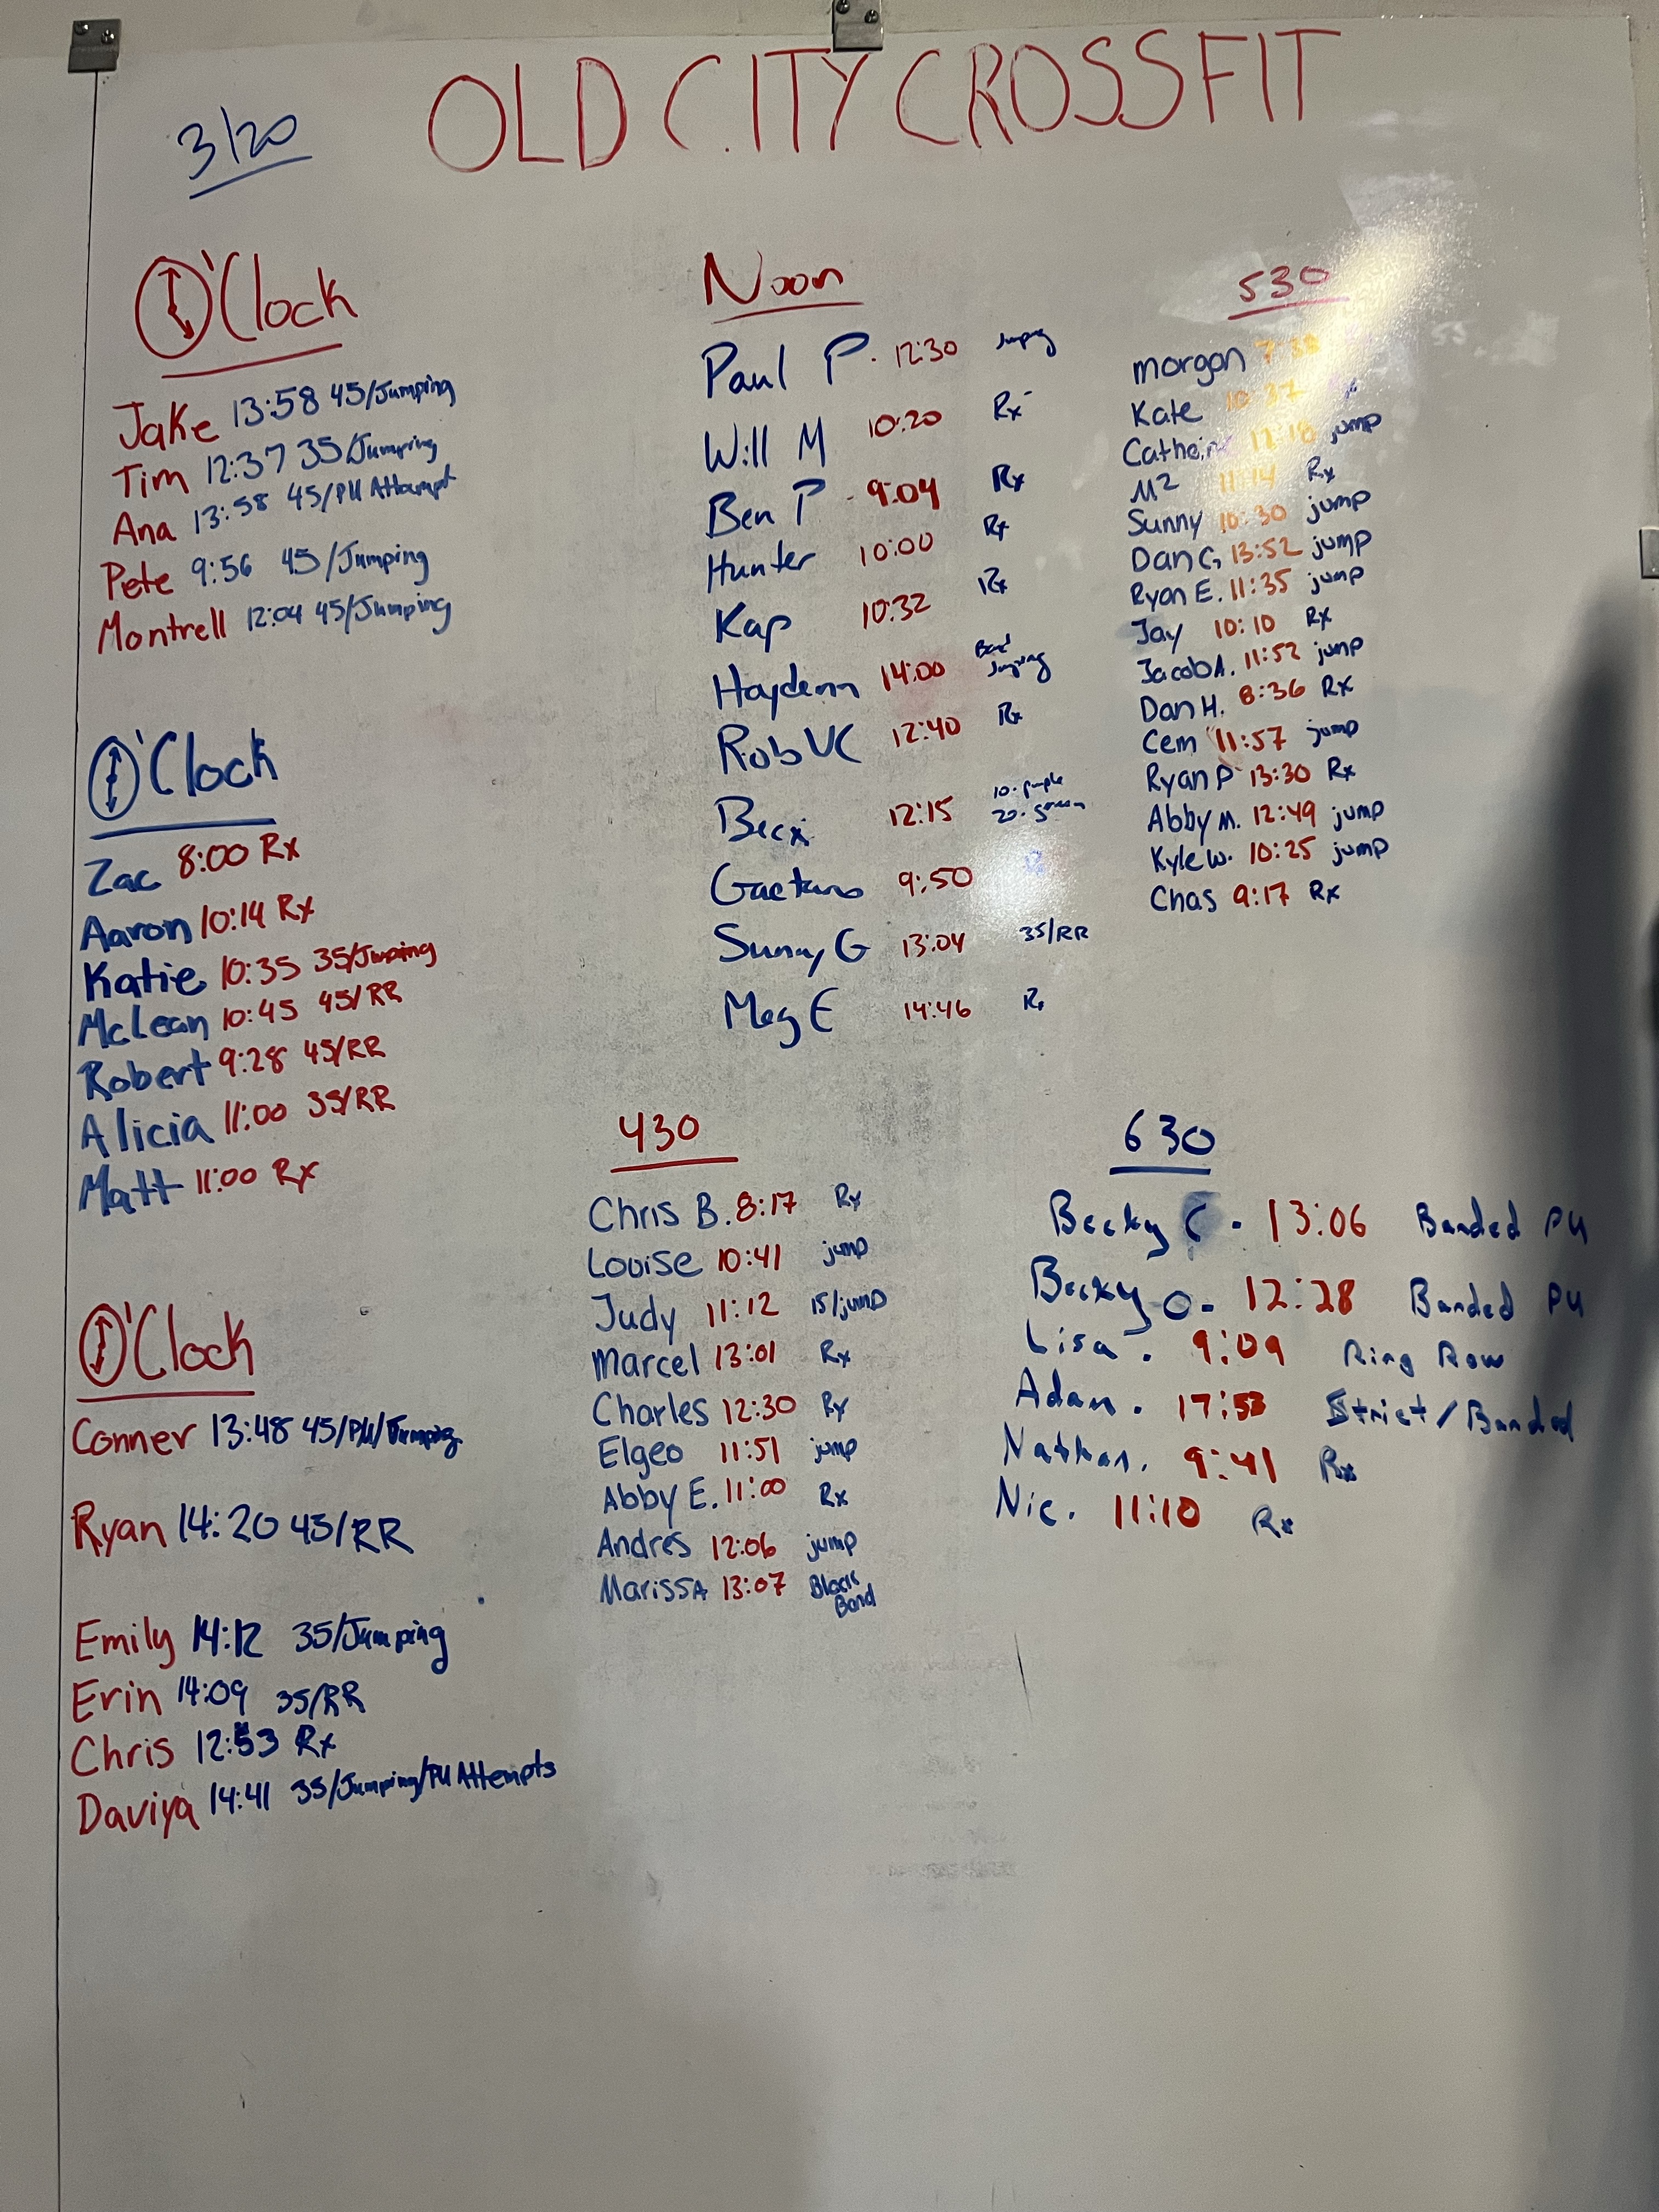 OLD CITY CROSSFIT
3/20
O'Clock
Jake 13:58 45/Jumping
Tim 12:37 35/Jumping
Ana 13:58 45/PU Attempt
Pete 9:56 45/Jumping
Montrell 12:04 45/Jumping
O'Clock
Zac 8:00 Rx
Aaron 10:14 Rx
Katie 10:35 35/Jumping
McLean 10:45 45/RR
Robert 9:28 45/RR
Alicia 11:00 35/RR
Matt 11:00 Rx
O'Clock
Conner 13:48 45/PU/Jumping
Ryan 14:20 45/RR
Emily 14:12 35/Jumping
Erin 14:09 35/RR
Chris 12:53 Rx
Daviya 14:41 35/Jumping/PU Attempts
Noon
Paul P. 12:30 Jumping
Will M 10:20 Rx
Ben P - 9:04 Rx
Hunter 10:00 Rx
Kap 10:32 Rx
Haydenn 14:00 Jumping
Rob VC 12:40 Rx
Becx 12:15 10-purple
20-green
Gaetano 9:50
Sunny G 13:04 35/RR
Meg E 14:46 Rx
430
Chris B. 8:17 Rx
Louise 10:41 jump
Judy 11:12 15/jump
Marcel 13:01 Rx
Charles 12:30 Rx
Elgeo 11:51 jump
Abby E. 11:00 Rx
Andres 12:06 jump
Marissa 13:07 Black
Band
530
morgan 7:38
Kate 10:37 Rx
12:18 jump
M² 11:14 Rx
Sunny 10:30 jump
Dan G 13:52 jump
Ryan E. 11:35 jump
Jay 10:10 Rx
Jacob A. 11:52 jump
Dan H. 8:36 Rx
Cem 11:57 jump
Ryan P 13:30 Rx
Abby M. 12:49 jump
Kyle W. 10:25 jump
Chas 9:17 Rx
630
Becky C - 13:06 Banded PU
Becky O - 12:28 Banded PU
Lisa . 9:09 Ring Row
Adam . 17:53 Strict/Banded
Nathan. 9:41 Rx
Nic. 11:10 Rx